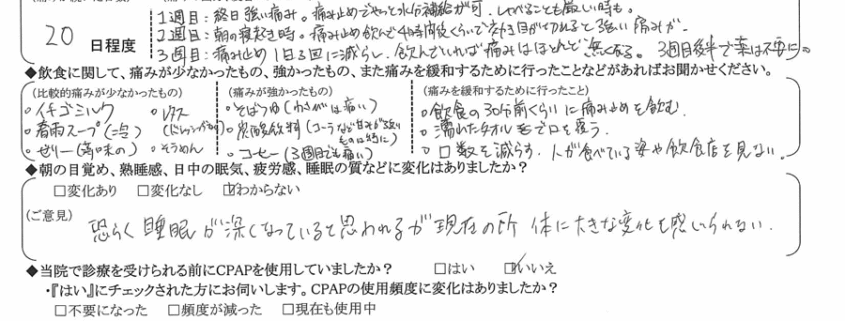 1週目：終日強い痛み。痛み止めでやっと水分補給が可。しゃべることも厳しい時も。
20 日程度
2週目：朝の寝起き時。痛み止め飲んで4時間後くらいで効き目が切れると強い痛みが。
3週目：痛み止め1日3回に減らし、飲んでいれば痛みはほとんど無くなる。3週目後半で薬は不要に。
◆飲食に関して、痛みが少なかったもの、強かったもの、また痛みを緩和するために行ったことなどがあればお聞かせください。
(比較的痛みが少なかったもの) (痛みが強かったもの) (痛みを緩和するために行ったこと)
・イチゴミルク ・レタス ・そばつゆ(わさびは痛い) ・飲食の30分前くらいに痛み止めを飲む。
・スープ(冷) ・炭酸飲料(コーラなど甘みが強いものは特に) ・濡れたタオルで口を覆う。
・ゼリー ・そうめん ・コーヒー(3週目でも痛い) ・口数を減らす。人が食べている姿や飲食店を見ない。
◆朝の目覚め、熟睡感、日中の眠気、疲労感、睡眠の質などに変化はありましたか？
□変化あり □変化なし ☑わからない
(ご意見) 恐らく睡眠が深くなっていると思われるが現在の所 体に大きな変化を感じられない。
◆当院で診療を受けられる前にCPAPを使用していましたか？ □はい ☑いいえ
・『はい』にチェックされた方にお伺いします。CPAPの使用頻度に変化はありましたか？
□不要になった □頻度が減った □現在も使用中